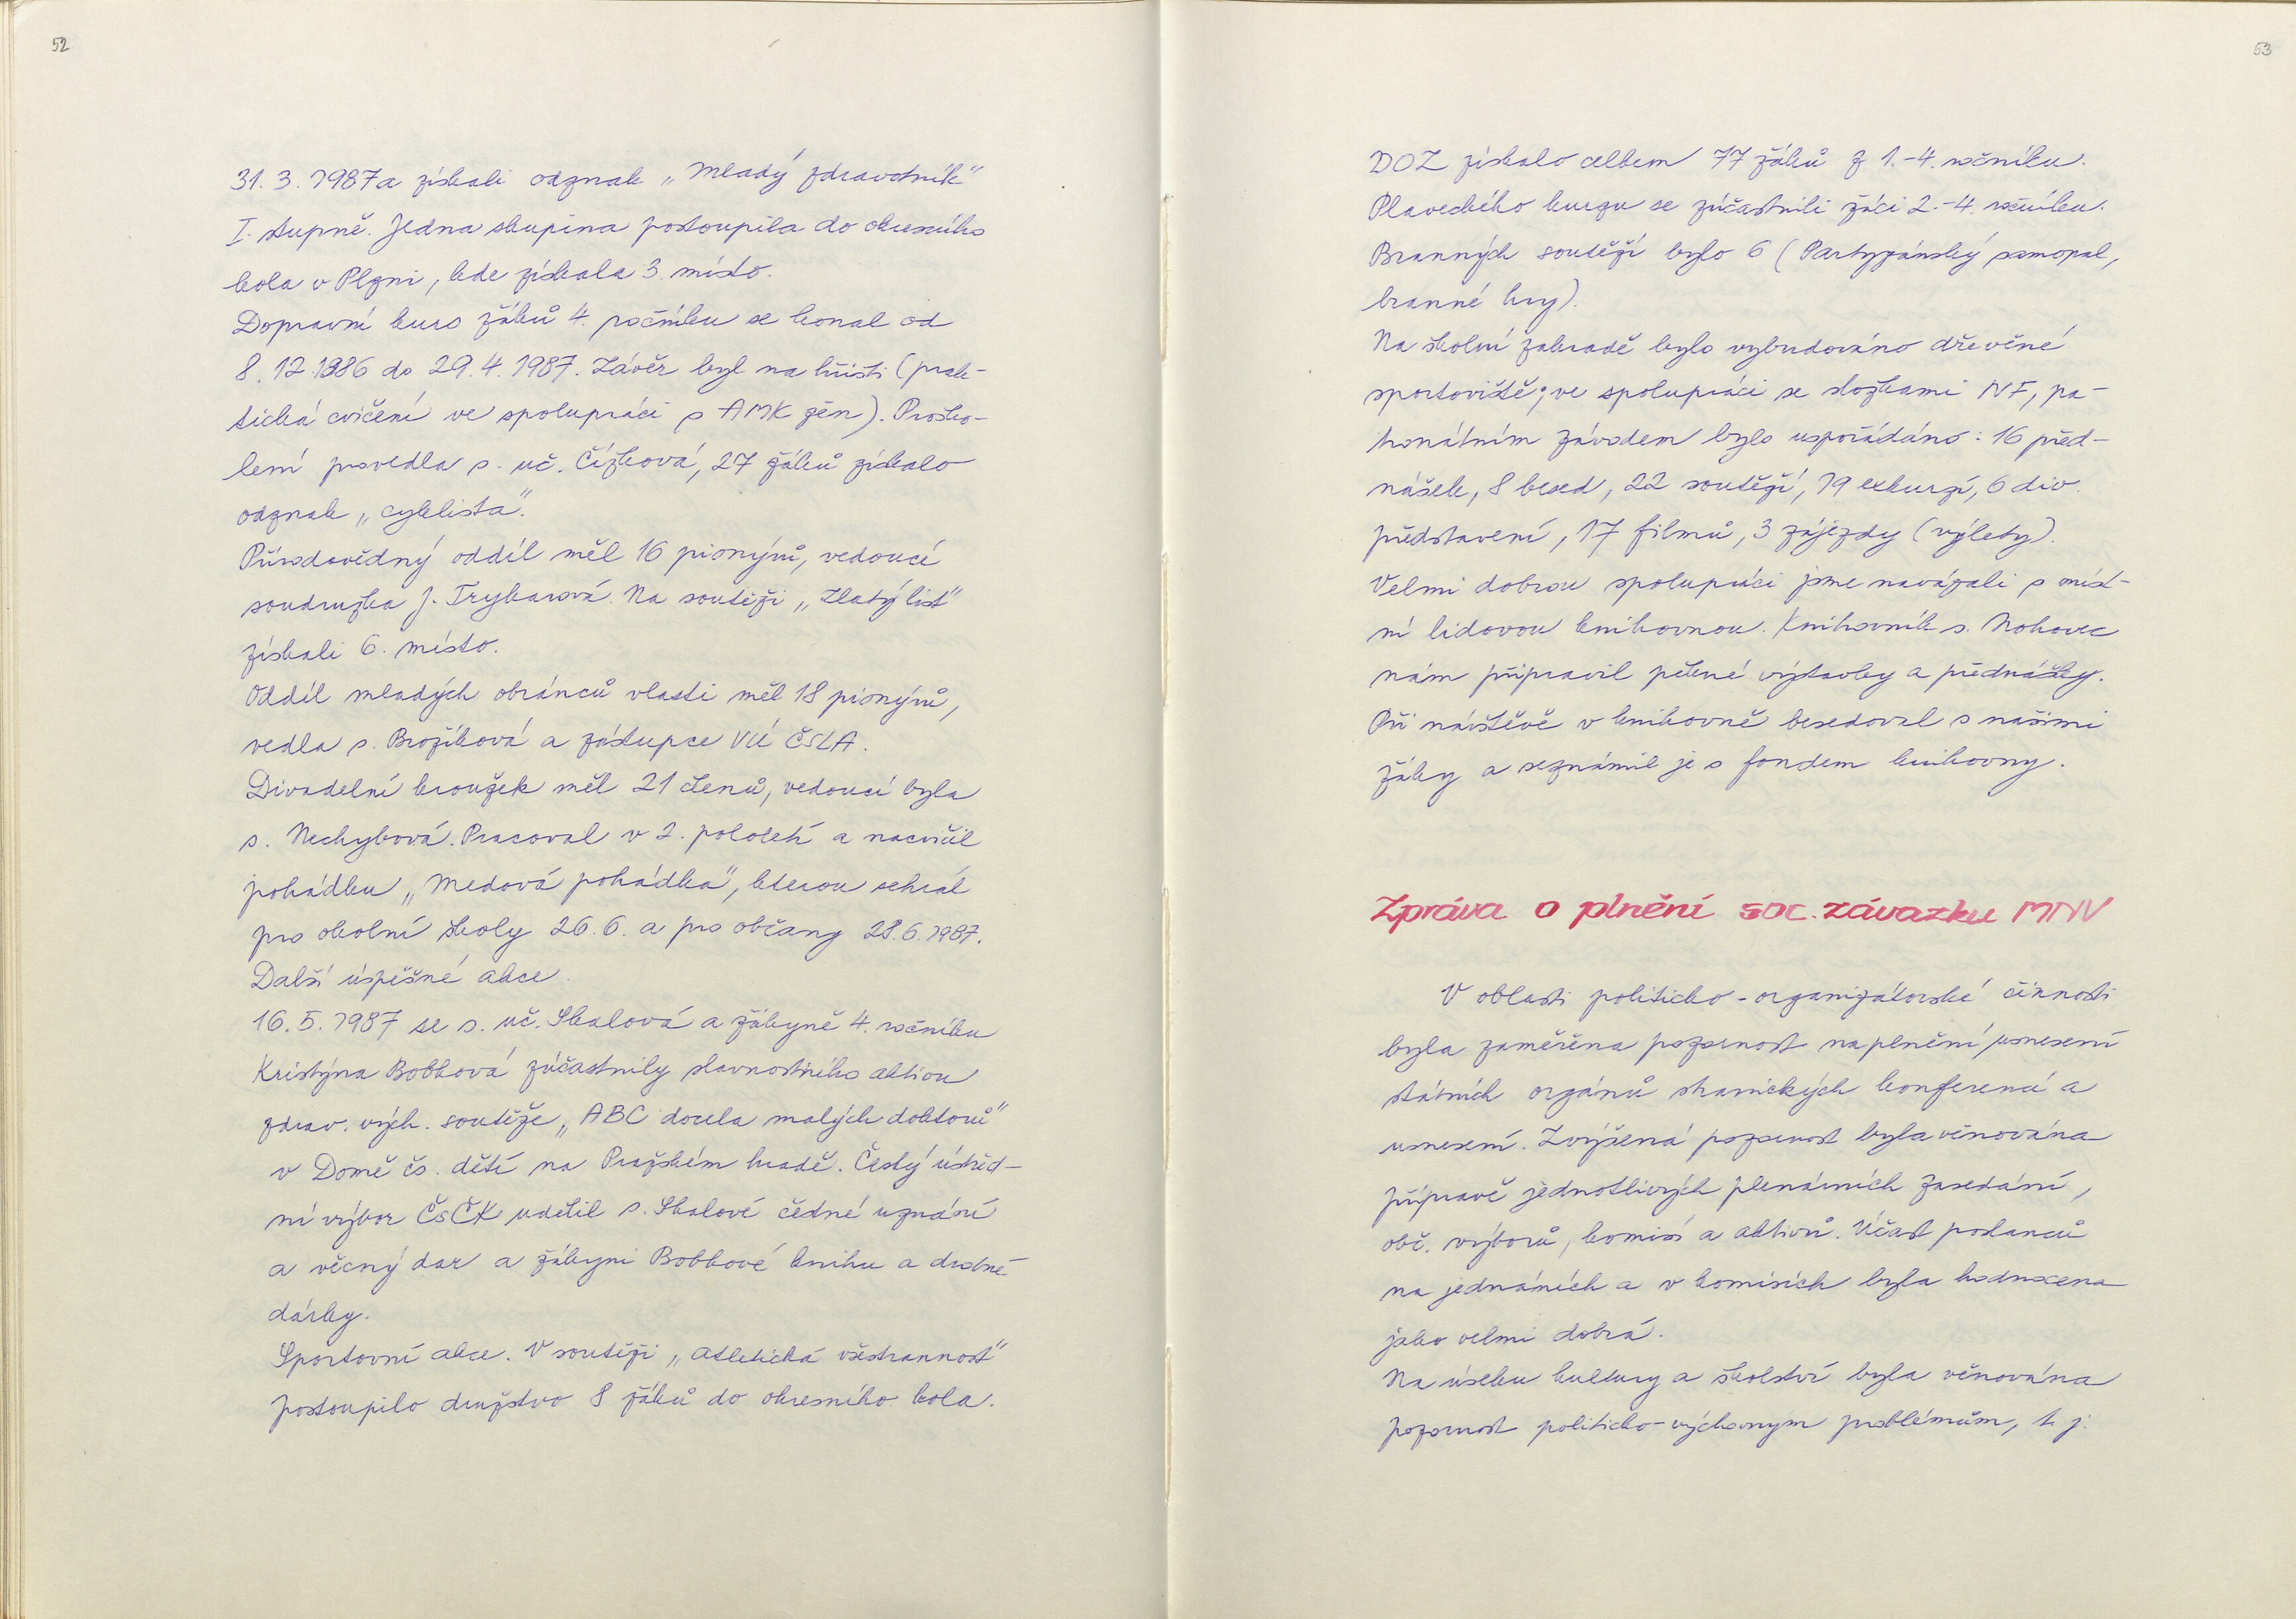 52
31. 3. 1987 a získali odznak „Mladý zdravotník"
I. stupně. Jedna skupina postoupila do okresního
kola v Plzni, kde získala 3. místo.
Dopravní kurs žáků 4. ročníku se konal od
8. 12. 1986 do 29. 4. 1987. Závěr byl na hřišti (prak-
tická cvičení ve spolupráci s AMK zén). Proško-
lení provedla s. uč. Čížková, 27 žáků získalo
odznak „cyklista".
Přírodovědný oddíl měl 16 pionýrů, vedoucí
soudružka J. Trykarová. Na soutěži „Zlatý list"
získali 6. místo.
Oddíl mladých obránců vlasti měl 18 pionýrů,
vedla s. Brožíková a zástupce VÚ ČSLA.
Divadelní kroužek měl 21 členů, vedoucí byla
s. Nechybová. Pracoval v 2. pololetí a nacvičil
pohádku „Medová pohádka", kterou sehrál
pro okolní školy 26. 6. a pro občany 28. 6. 1987.
Další úspěšné akce.
16. 5. 1987 se s. uč. Skalová a žákyně 4. ročníku
Kristýna Bobková zúčastnily slavnostního aktivu
zdrav. vých. soutěže „ABC docela malých doktorů"
v Domě čs. dětí na Pražském hradě. Český ústřed-
ní výbor ČSČK udělil s. Skalové čestné uznání
a věcný dar a žákyni Bobkové knihu a drobné
dárky.
Sportovní akce. V soutěži „Atletická všestrannost"
postoupilo družstvo 8 žáků do okresního kola.
53
DOZ získalo celkem 77 žáků z 1.-4. ročníku.
Plaveckého kurzu se zúčastnili žáci 2.-4. ročníku.
Branných soutěží bylo 6 (Partyzánský samopal,
branné hry).
Na školní zahradě bylo vybudováno dřevěné
sportoviště; ve spolupráci se složkami NF, pa-
tronátním závodem bylo uspořádáno: 16 před-
nášek, 8 besed, 22 soutěží, 19 exkurzí, 6 div.
představení, 17 filmů, 3 zájezdy (výlety).
Velmi dobrou spolupráci jsme navázali s míst-
ní lidovou knihovnou. Knihovník s. Nohovec
nám připravil pěkné výstavky a přednášky.
Při návštěvě v knihovně besedoval s našimi
žáky a seznámil je s fondem knihovny.
Zpráva o plnění soc. závazku MNV
V oblasti politicko-organizátorské činnosti
byla zaměřena pozornost na plnění usnesení
státních orgánů stranických konferencí a
usnesení. Zvýšená pozornost byla věnována
přípravě jednotlivých plenárních zasedání,
obč. výborů, komisí a aktivů. Účast poslanců
na jednáních a v komisích byla hodnocena
jako velmi dobrá.
Na úseku kultury a školství byla věnována
pozornost politicko-výchovným problémům, t. j.